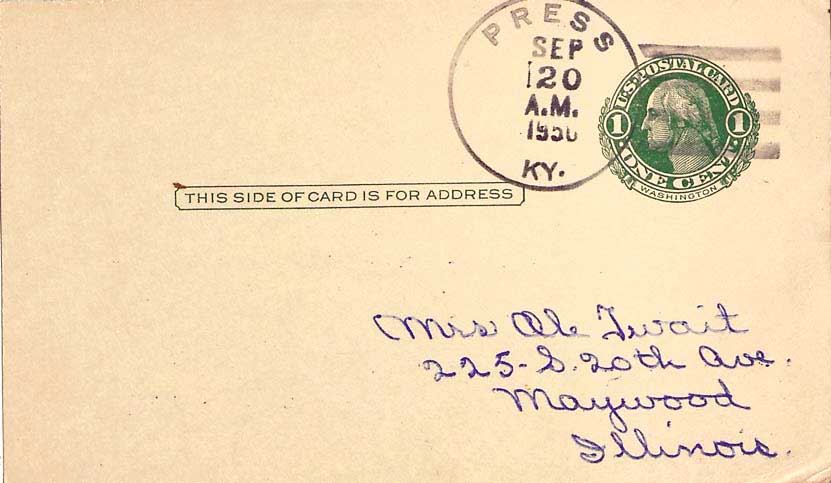 PRESS
SEP
20
A.M.
KY.
U.S. POSTAL CARD
1 1
ONE CENT
WASHINGTON
THIS SIDE OF CARD IS FOR ADDRESS
Mrs Ole Twait
225-S. 20th Ave.
Maywood
Illinois.